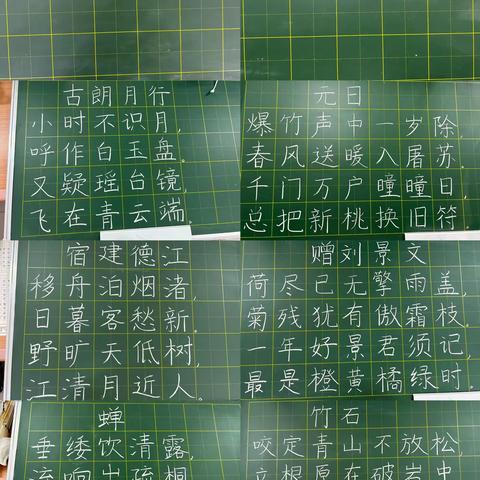 古朗月行
小时不识月,
呼作白玉盘。
又疑瑶台镜,
飞在青云端。
元日
爆竹声中一岁除,
春风送暖入屠苏。
千门万户曈曈日
总把新桃换旧符
宿建德江
移舟泊烟渚,
日暮客愁新。
野旷天低树,
江清月近人。
赠刘景文
荷尽已无擎雨盖,
菊残犹有傲霜枝。
一年好景君须记,
最是橙黄橘绿时。
蝉
垂緌饮清露,
流响出疏桐
竹石
咬定青山不放松,
立根原在破岩中